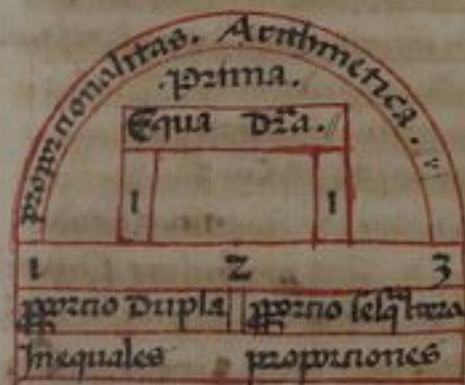 proporcionalitas. Arithmetica.
.prima.
Equa Dr̃a.
1 1
1 2 3
ꝓporcio Dupla ꝓporcio sesq̃ltera
Inequales proporciones